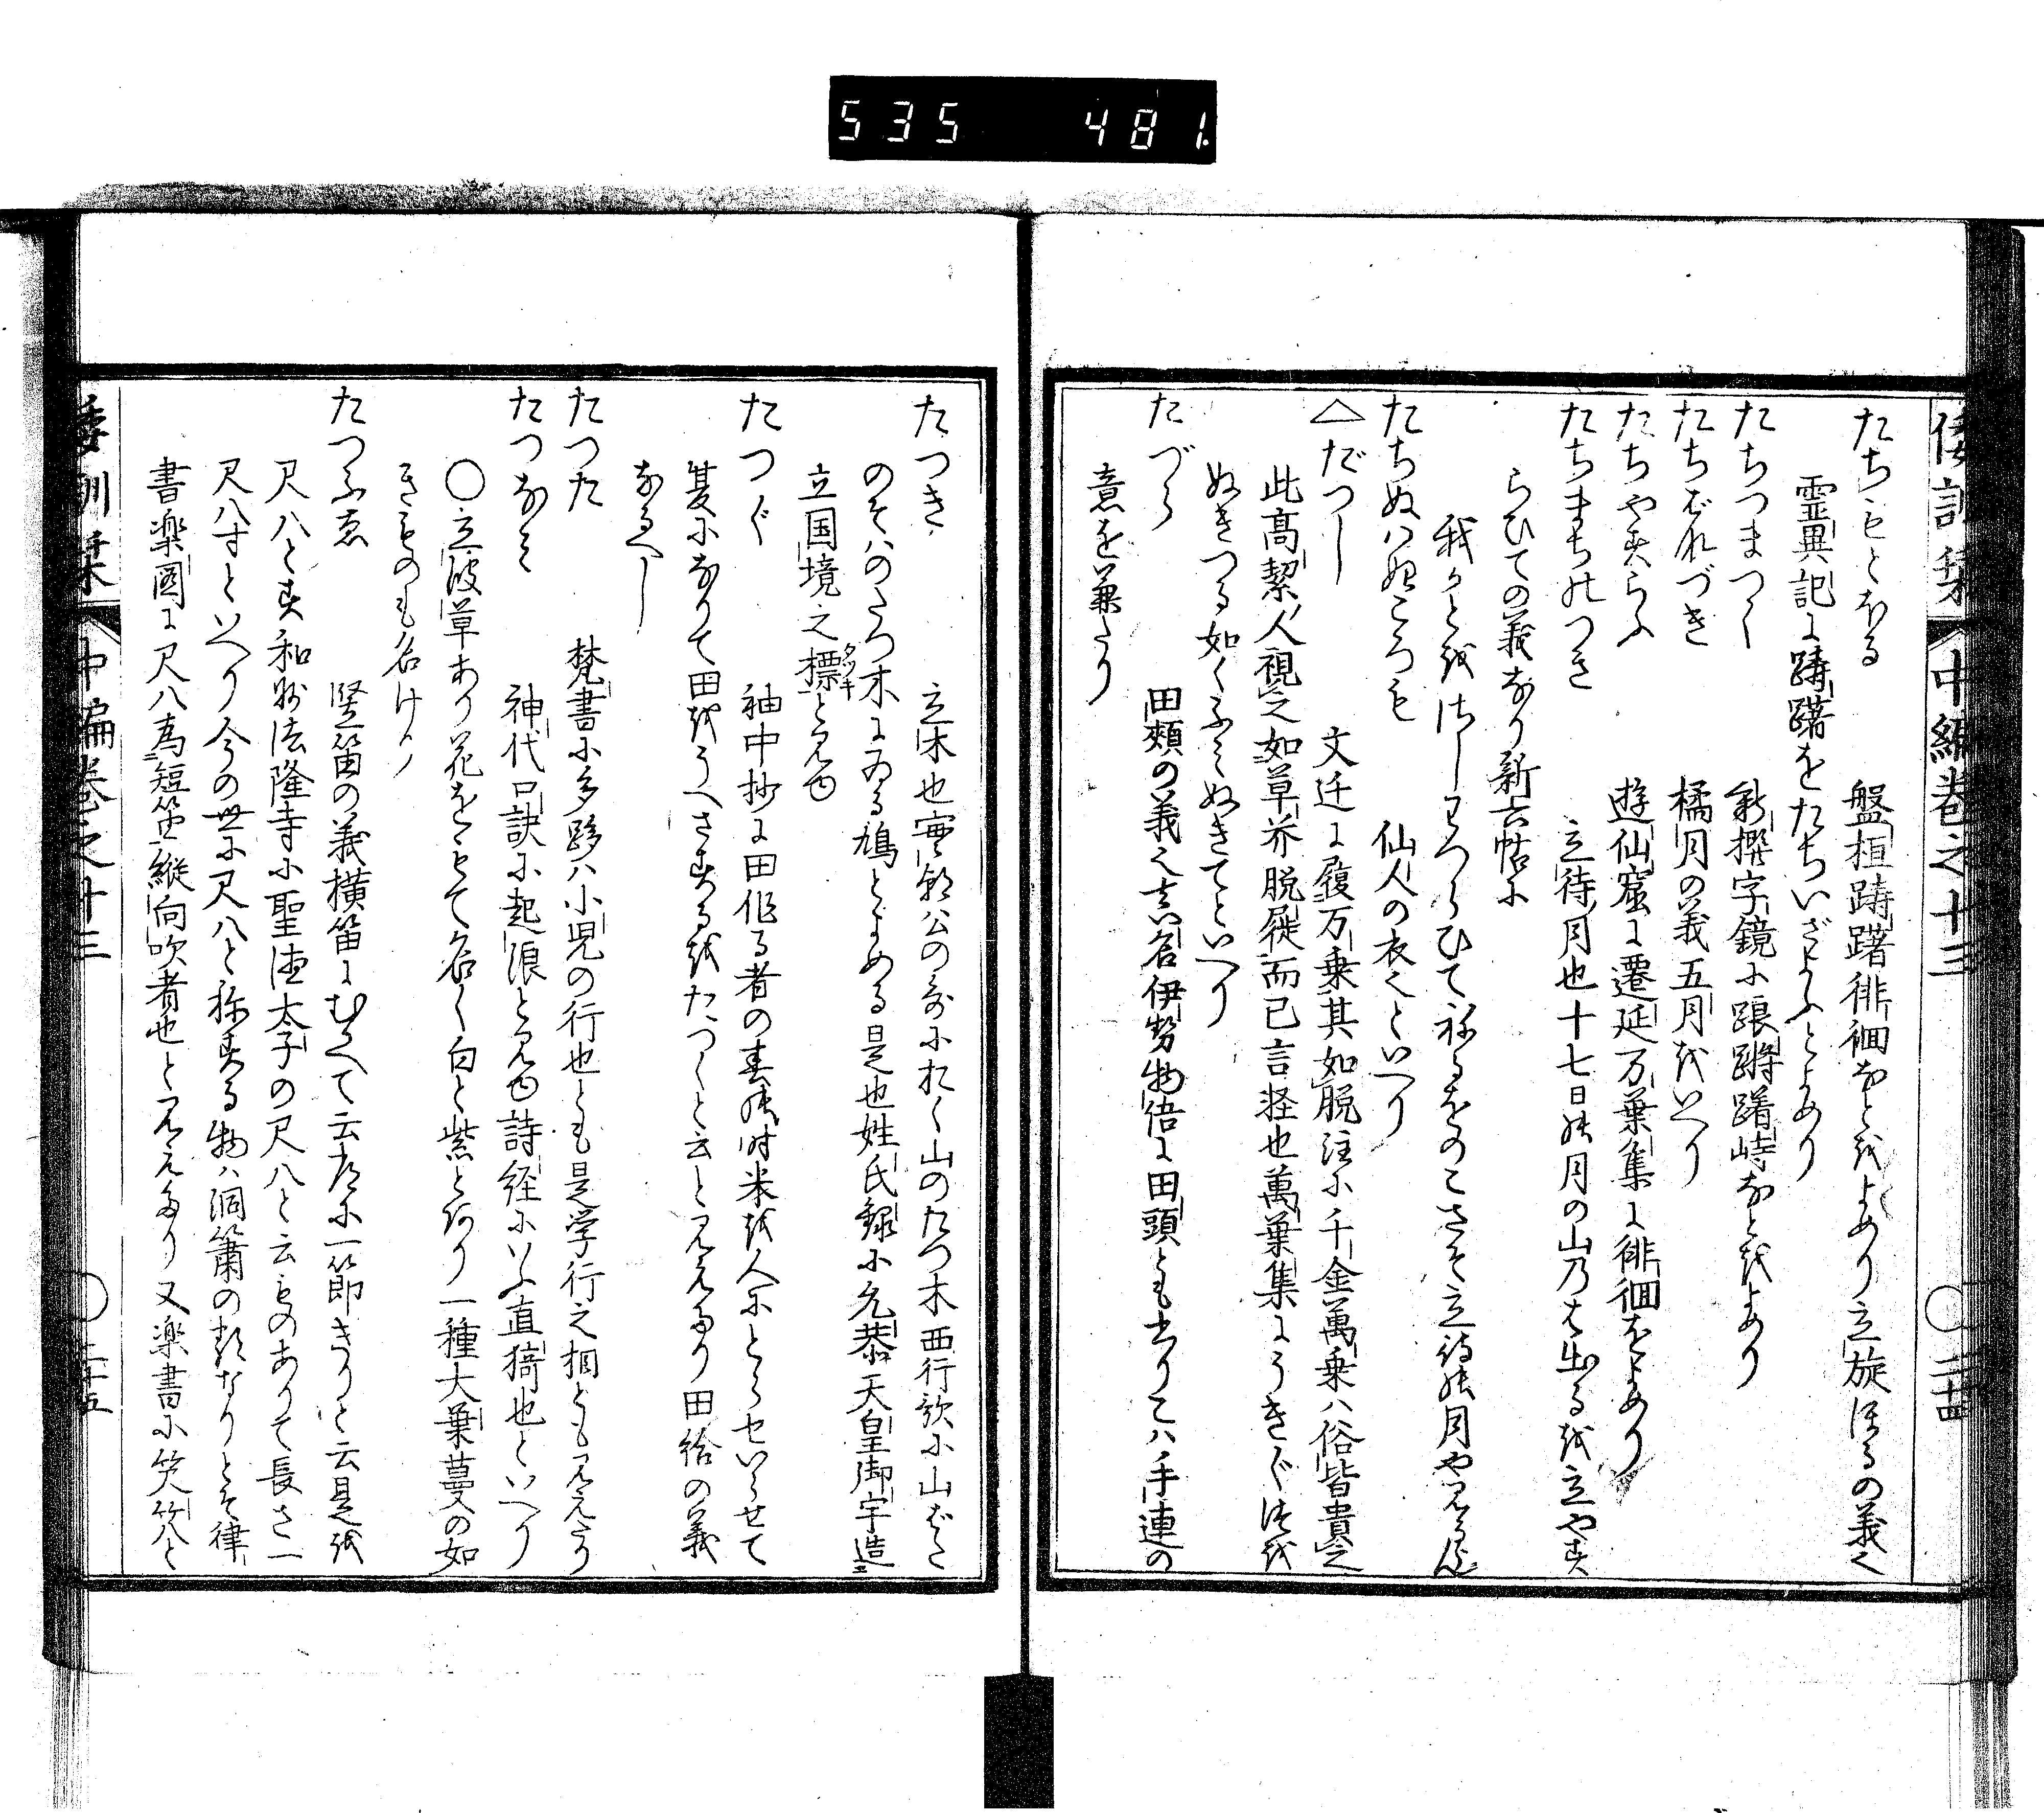 535 481.
倭訓栞 中編巻之十三 ○二十四
たちもとほる 盤桓躊躇徘徊なとをよめり立旋ほるの義也
霊異記に躊躇をたちいざよふとよめり
たちつまつく 新撰字鏡に踉蹡躇峙なとをよめり
たちばなづき 橘月の義五月をいへり
たちやすらふ 遊仙窟に遷延万葉集に徘徊をよめり
たちまちのつき 立待月也十七日の月の山乃は出るを立やす
らひての義なり新六帖に
我かとをさしわつらひてねるをのこさそ立待の月や見るらん
たちぬはぬころも 仙人の衣也といへり
△だつし 文迁に履万乗其如脱注に千金萬乗ハ俗皆貴之
此高絜人視之如草芥脱屣而已言軽也萬葉集にうきぐつを
ぬきつる如くふみぬきてといへり
たづら 田頬の義也真名伊勢物語に田頭とも書りこハ手連の
意を兼たり
たつき 立木也実郷公の哥におく山のたつ木西行歌に山ばた
のそハのたつ木にゐる鳩とよめる是也姓氏録に允恭天皇御宇造_二
立国境之標_一タツキと見ゆ
たつぐ 袖中抄に田作る者の春の時米を人にとらせいらせて
夏になりて田をうへさするをたつくと云と見えたり田給の義
なるへし
たつた 梵書に多跢ハ小児の行也とも是学行之相とも見えたり
たつなみ 神代口訣に起浪と見ゆ詩経にいふ直猗也といへり
○立波草あり花をもて名く白と紫とあり一種大葉蔓の如
きものも名けり
たつふゑ 竪笛の義横笛にむかへて云尤に一節きりと云是を
尺八とす和州法隆寺に聖徳太子の尺八と云ものありて長さ一
尺八寸といへり今の世に尺八と称する物ハ洞簫の類なりとそ律
書楽図に尺八為_二短笛_一縦向吹者也と見えたり又楽書に笑竹八と
倭訓栞 中編巻之十三 ○二十五